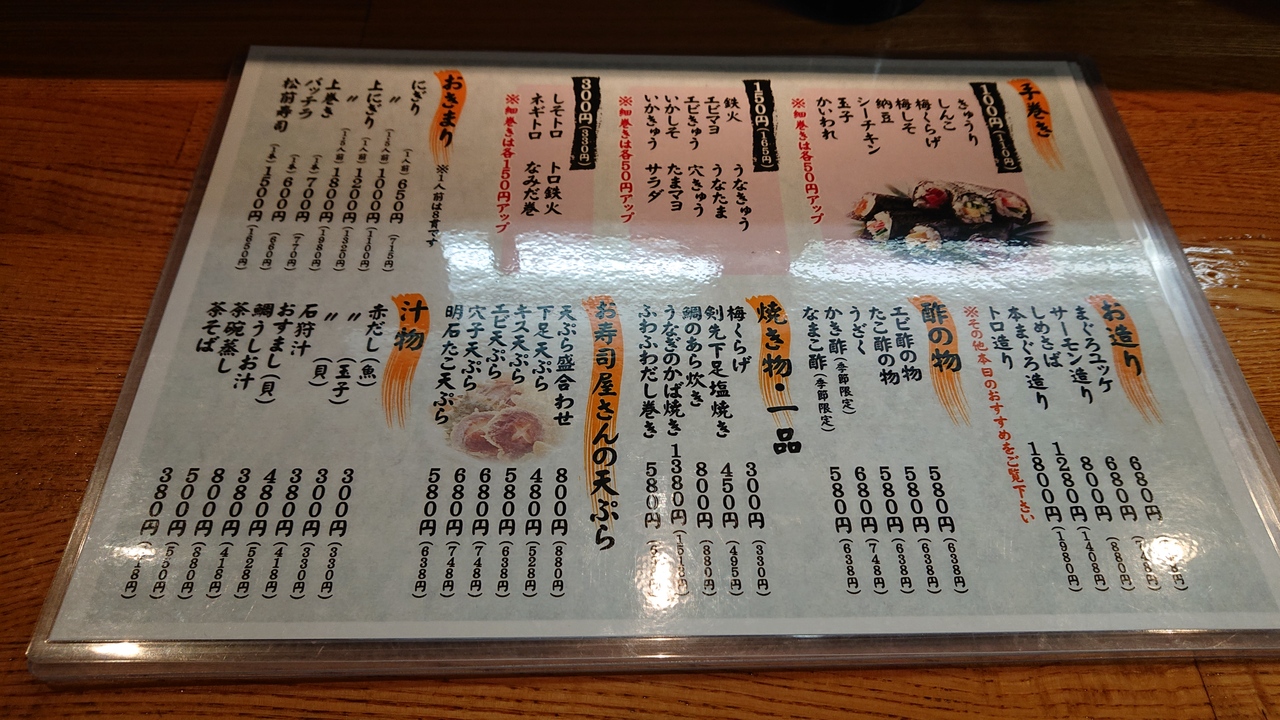 手巻き
100円(110円)
きゅうり
しんこ
梅くらげ
梅しそ
納豆
シーチキン
玉子
かいわれ
※細巻きは各50円アップ
150円(165円)
鉄火 うなきゅう
エビマヨ うなたま
エビきゅう 穴きゅう
いかしそ たまマヨ
いかきゅう サラダ
※細巻きは各50円アップ
300円(330円)
しそトロ トロ鉄火
ネギトロ なみだ巻
※細巻きは各150円アップ
おきまり ※1人前は8貫です
にぎり (1人前) 650円 (715円)
〃 (1.5人前) 1000円 (1100円)
上にぎり (1人前) 1200円 (1320円)
〃 (1.5人前) 1800円 (1980円)
上巻き (1本) 700円 (770円)
バッテラ (1本) 600円 (660円)
松前寿司 (1本) 1500円 (1650円)
お造り
まぐろユッケ 680円
サーモン造り 680円
しめさば 800円 (880円)
本まぐろ造り 1280円 (1408円)
トロ造り 1800円 (1980円)
※その他本日のおすすめをご覧下さい
酢の物
エビ酢の物 580円 (638円)
たこ酢の物 580円 (638円)
うざく 580円 (638円)
かき酢(季節限定) 680円 (748円)
なまこ酢(季節限定) 580円 (638円)
焼き物・一品
梅くらげ 300円 (330円)
剣先下足塩焼き 450円 (495円)
鯛のあら炊き 800円 (880円)
うなぎのかば焼き 1380円 (1518円)
ふわふわだし巻き 580円
お寿司屋さんの天ぷら
天ぷら盛合わせ 800円 (880円)
下足天ぷら 480円 (528円)
キス天ぷら 580円 (638円)
エビ天ぷら 680円 (748円)
穴子天ぷら 680円 (748円)
明石たこ天ぷら 580円 (638円)
汁物
赤だし(魚) 300円 (330円)
〃 (玉子) 300円 (330円)
〃 (貝) 380円 (418円)
石狩汁 480円 (528円)
おすまし(貝) 380円 (418円)
鯛うしお汁 800円 (880円)
茶碗蒸し 500円 (550円)
茶そば 380円 (418円)